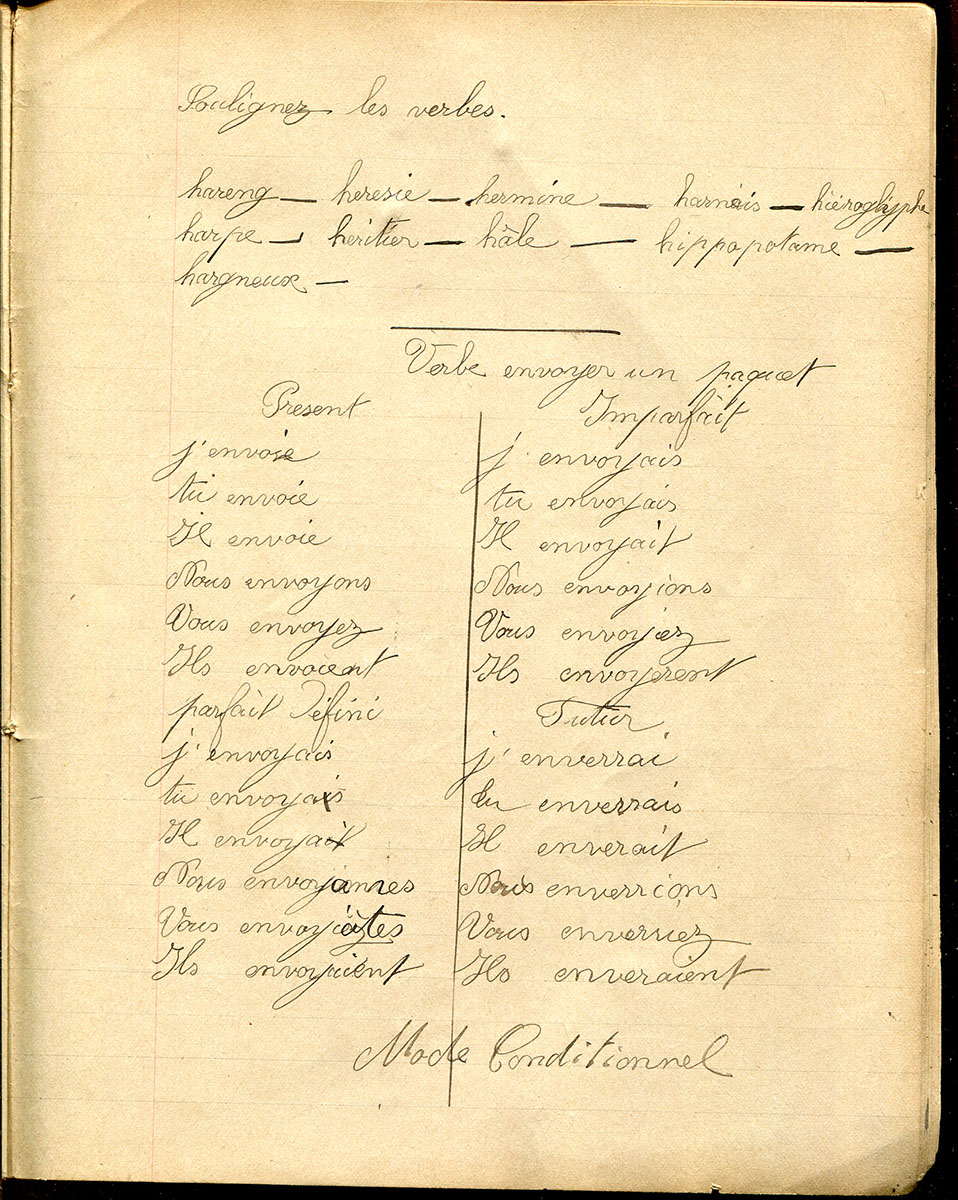 Soulignez les verbes.
hareng — heresie — hermine — harnais — hiéroglyphe
harpe — heritier — hâle — hippopotame —
hargneux —
Verbe envoyer un paquet
Present
j'envoie
tu envoie
Il envoie
Nous envoyons
Vous envoyez
Ils envoient
parfait Défini
j'envoyais
tu envoyais
Il envoyait
Nous envoyames
Vous envoyiâtes
Ils envoyaient
Imparfait
j'envoyais
tu envoyais
Il envoyait
Nous envoyions
Vous envoyiez
Ils envoyerent
Futur
j'enverrai
tu enverrais
Il enverait
Nous enverrions
Vous enverriez
Ils enveraient
Mode Conditionnel